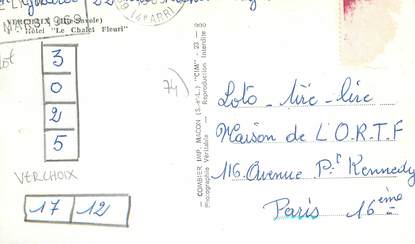 VERCHOIX (Hte-Savoie)
Hôtel "Le Chalet Fleuri"
3
0
2
5
74)
VERCHOIX
17 12
— COMBIER IMP. MACON (S.-&-L.) "CIM" - 23 — 900
Photographie Véritable — Reproduction Interdite
Loto - tiré - lire
Maison de L'O.R.T.F
116 Avenue P.r Kennedy
Paris 16ème